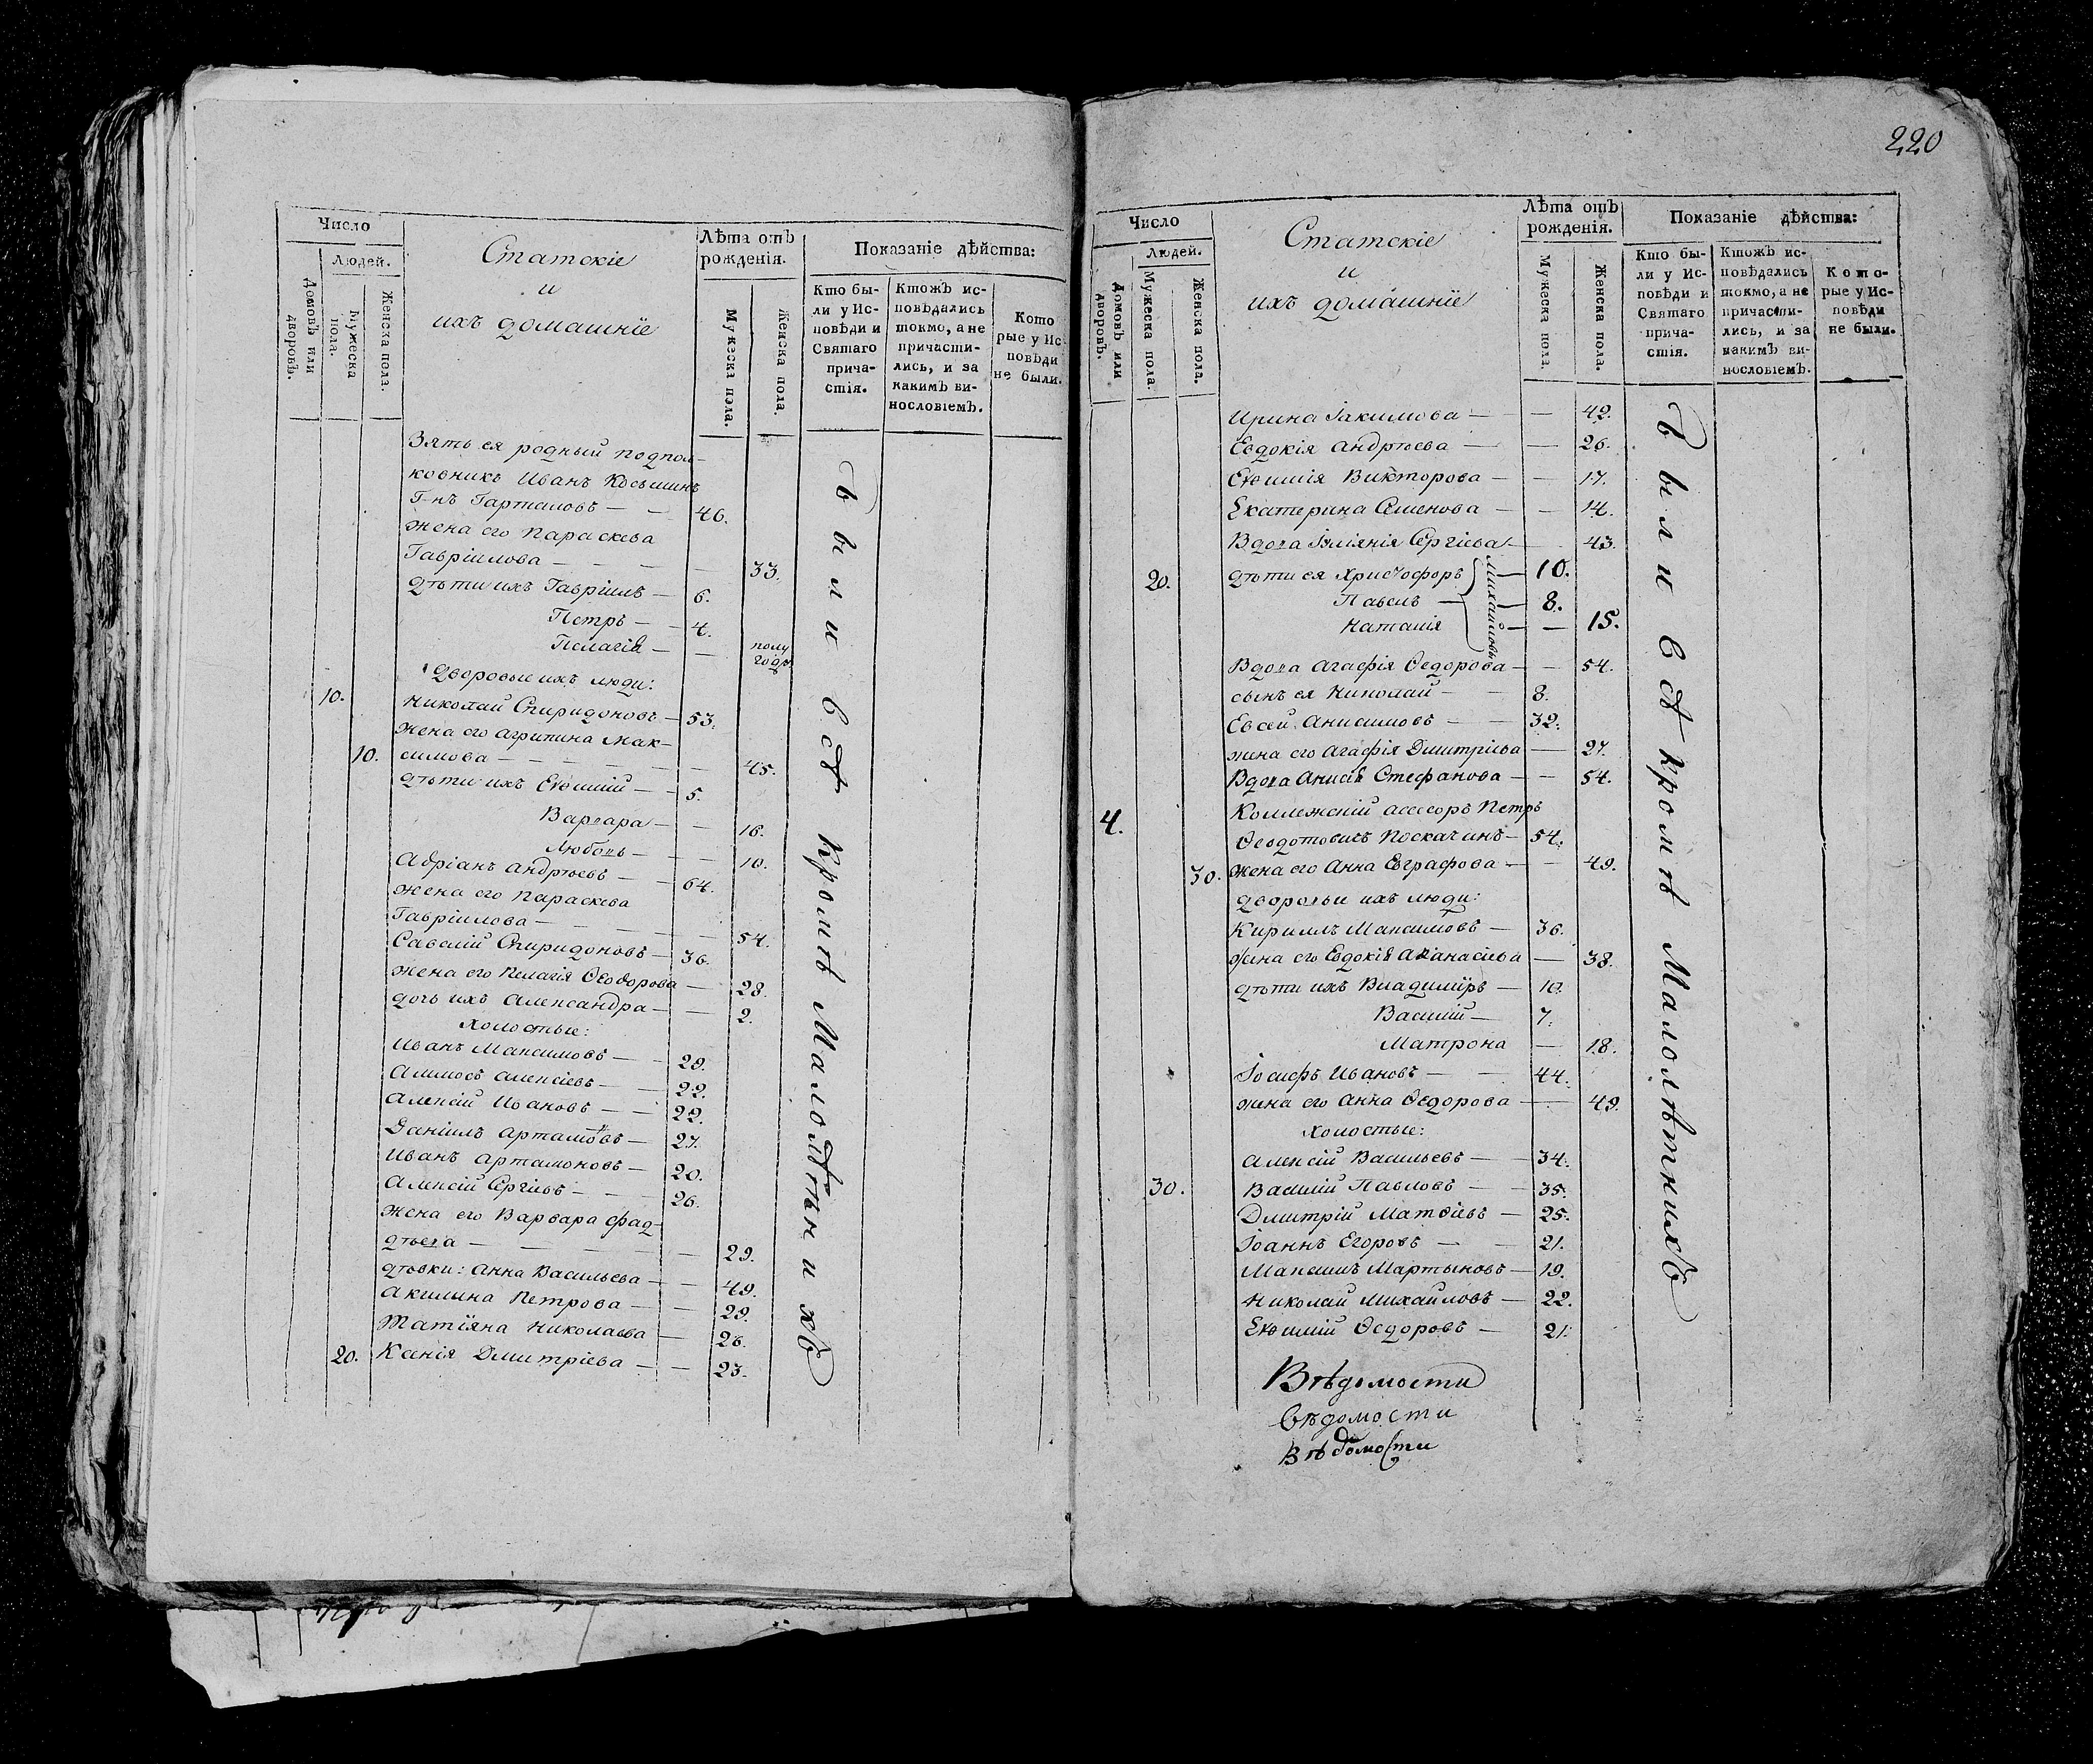 Число
Людей.
Домовъ или дворовъ.
Мужеска пола.
Женска пола.
Статскіе
и
ихъ домашніе
Лѣта отъ
рожденія.
Мужеска пола.
Женска пола.
Показаніе дѣйства:
Кто бы-
ли у Ис-
повѣди и
Святаго
прича-
стія.
Ктожъ ис-
повѣдались
токмо, а не
причасти-
лись, и за
какимъ ви-
нословіемъ.
Кото
рые у Ис
повѣди
не были.
Зять ея родный подпол-
ковникъ Иванъ Косьминъ
Г-нъ Гартамовъ — — 46.
жена его Параскева
Гавріилова — — — — 33.
дѣти ихъ Гавріилъ — 6.
Петръ — — 4.
Пелагія — — полу
года
дворовые ихъ люди:
10. Николай Спиридоновъ — 53.
жена его Агрипина Мак-
10. симова — — — — — 45.
дѣти ихъ Евѳимій — — 5.
Варвара — — 16.
Любовь — — — 10.
Адріанъ Андрѣевъ — — 64.
жена его Параскева
Гавріилова — — — — 54.
Савелій Спиридоновъ — 36.
жена его Пелагія Ѳеодорова — 28.
дочь ихъ Александра — — 2.
холостые:
Иванъ Максимовъ — — 29.
Аммосъ Алексіевъ — — 22.
Алексій Ивановъ — — 22.
Даніилъ Артамовъ — 27.
Иванъ Артамоновъ — 20.
Алексій Сергіевъ — — — 26.
жена его Варвара Фад-
дѣева — — — — — 29.
дѣвки: Анна Васильева — — 49.
Акилина Петрова — — 29.
Татіяна Николаева — 26.
20. Ксенія Дмитріева — — 23.
Были всѣ кромѣ Малолѣтнихъ
220
Число
Людей.
Домовъ или дворовъ.
Мужеска пола.
Женска пола.
Статскіе
и
ихъ домашніе
Лѣта отъ
рожденія.
Мужеска пола.
Женска пола.
Показаніе дѣйства:
Кто бы-
ли у Ис-
повѣди и
Святаго
прича-
стія.
Ктожъ ис-
повѣдались
токмо, а не
причасти-
лись, и за
какимъ ви-
нословіемъ.
Кото-
рые у Ис-
повѣди
не были.
Ирина Іакимова — — 42.
Евдокія Андрѣева — — 26.
Евѳимія Викторова — — 17.
Екатерина Семенова — — 14.
Вдова Іуліянія Сергіева — 43.
20. дѣти ея Христофоръ — 10.
Павелъ — — 8.
Наталія — — 15.
Михайловы
Вдова Агафія Ѳедорова — — 54.
сынъ ея Николай — — 8.
Евсей Анисимовъ — — 32.
жена его Агафія Дмитріева — 27.
Вдова Анисія Стефанова — — 54.
4. Коллежскій ассесоръ Петръ
Ѳеодотовичъ Поскачинъ — 54.
30. жена его Анна Евграфова — — 49.
дворовые ихъ люди:
Кириллъ Максимовъ — 36.
жена его Евдокія Аѳанасіева — 38.
дѣти ихъ Владиміръ — 10.
Василій — 7.
Матрона — 18.
Іосифъ Ивановъ — — 44.
жена его Анна Ѳедорова — 49.
холостые:
Алексій Васильевъ — — 34.
30. Василій Павловъ — — 35.
Дмитрій Матѳіевъ — 25.
Іоаннъ Егоровъ — — 21.
Максимъ Мартыновъ — 19.
Николай Михайловъ — 22.
Евѳимій Ѳедоровъ — 21.
Были всѣ кромѣ Малолѣтнихъ
Вѣдомости
Вѣдомости
Вѣдомости